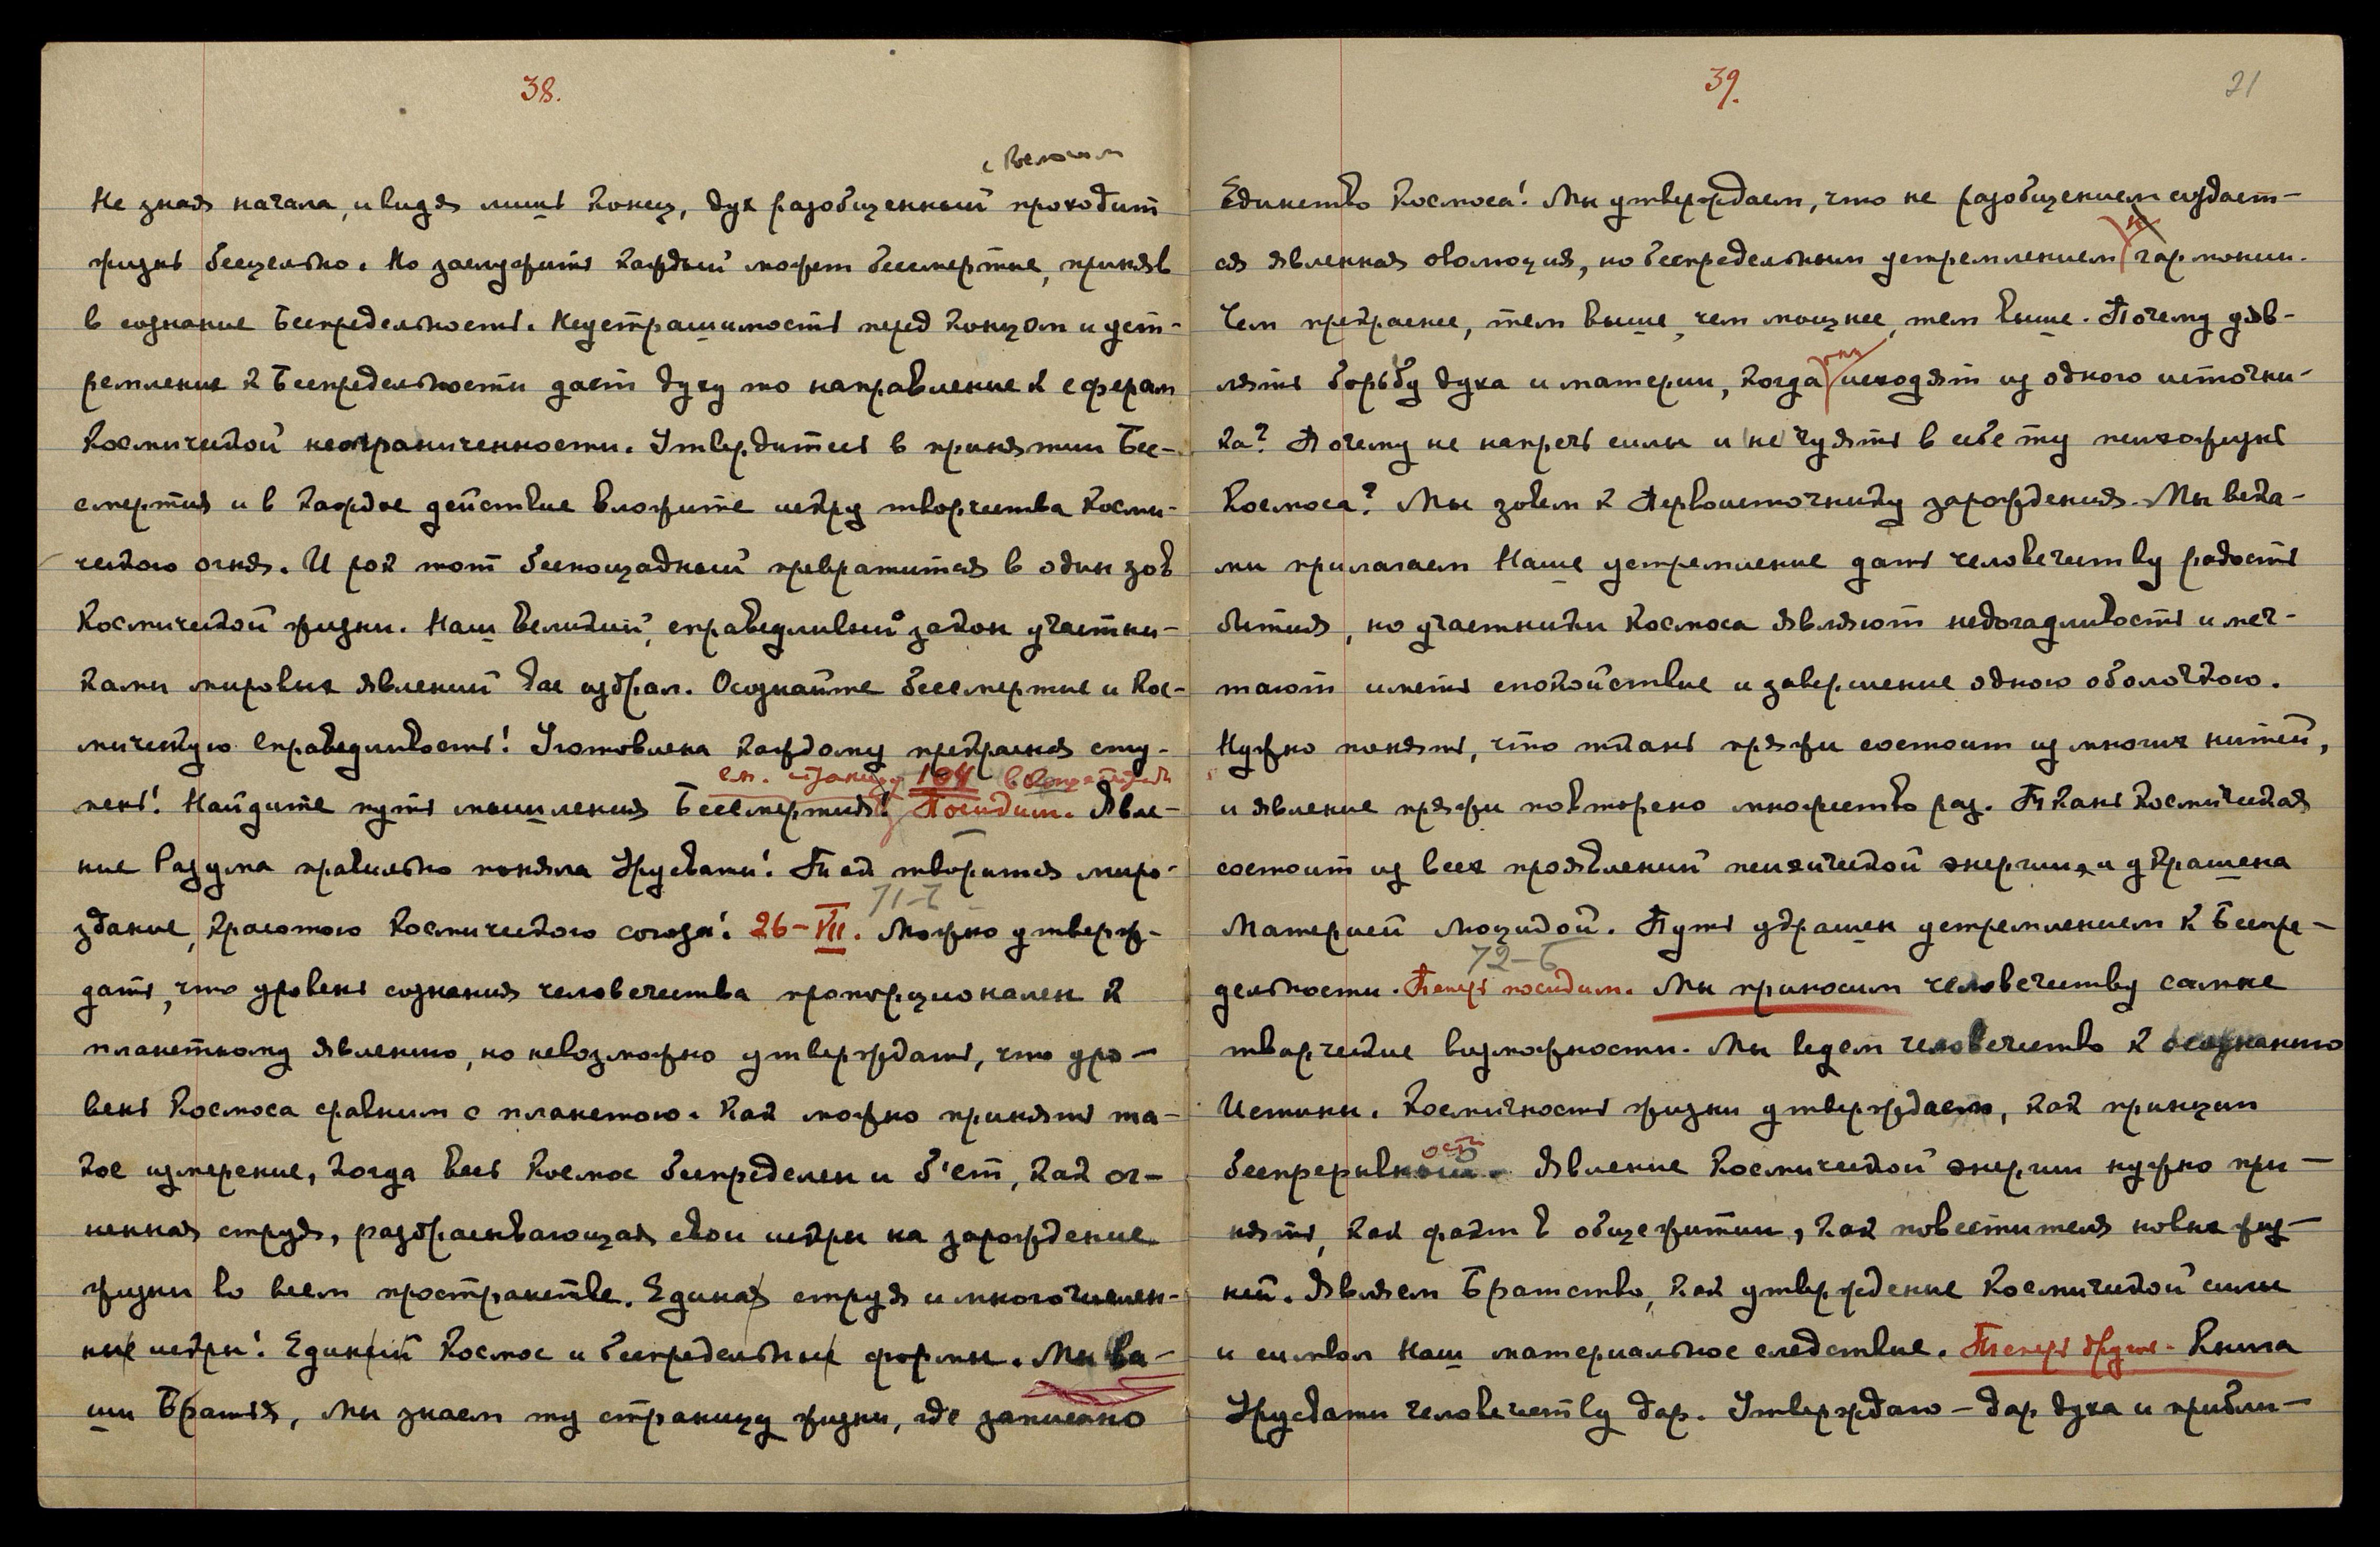 38.
Не зная начала, и видя лишь конец, дух разобщенный проходит
жизнь бесцельно. Но заслужить каждый может бессмертие, приняв
в сознание Беспредельность. Неустрашимость перед концом и уст-
ремление к Беспредельности дает духу то направление к сферам
Космической неограниченности. Утвердитесь в принятии Бес-
смертия и в каждое действие вложите искру творчества Косми-
ческого огня. И рок тот беспощадный превратится в один зов
Космической жизни. Наш великий, справедливый закон участни-
ками мировых явлений вас избрал. Осознайте бессмертие и Кос-
мическую Справедливость! Уготовлена каждому прекрасная сту-
см. страницу 104
пень! Найдите путь мышления Бессмертия! Посидим. Явле-
ние Разума правильно поняла Урусвати! Так творится миро-
71-I
здание, красотою Космического союза! 26-VII. Можно утверж-
дать, что уровень сознания человечества пропорционален к
планетному явлению, но невозможно утверждать, что уро-
вень Космоса сравним с планетою. Как можно принять та-
кое измерение, когда весь Космос беспределен и б'ет, как ог-
ненная струя, разбрасывающая свои искры на зарождение
жизни во всем пространстве. Единая струя и многочислен-
ные искры! Единый Космос и беспредельные формы. Мы ва-
ши Братья, Мы знаем ту страницу жизни, где записано
39.
21
Единство Космоса! Мы утверждаем, что не разобщением создает-
ся явленная эволюция, но беспредельным устремлением к гармонии.
Чем прекраснее, тем выше, чем мощнее, тем выше. Почему удв-
лять борьбу духа и материи, когда они исходят из одного источни-
ка? Почему не напречь силы и не чуять в себе ту психожизнь
Космоса? Мы зовем к Первоисточнику зарождения. Мы века-
ми прилагаем Наше устремление дать человечеству радость
бытия, но участники Космоса являют недогадливость и меч-
тают иметь спокойствие и завершение одною оболочкою.
Нужно понять, что ткань пряжи состоит из многих нитей,
и явление пряжи повторено множество раз. Ткань Космическая
состоит из всех проявлений психической энергии, и украшена
Материей Люцидой. Путь украшен устремлением к Беспре-
72-Б
дельности. Теперь посидим. Мы приносим человечеству самые
творческие возможности. Мы ведем человечество к осознанию
Истины. Космичность жизни утверждаем, как принцип
беспрерывности. Явление Космической энергии нужно при-
нять, как факт в общежитии, как повестителя новых жиз-
ней. Являем Братство, как утверждение Космической силы
и символ Наш материальное следствие. Теперь другое. Книга
Урусвати человечеству дар. Утверждаю - дар духа и прибли-